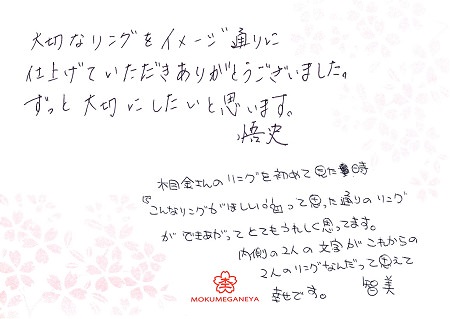 大切なリングをイメージ通りに
仕上げていただきありがとうございました。
ずっと大切にしたいと思います。
悟史
木目金さんのリングを初めて見た時
『こんなリングがほしい!!』って思った通りのリング
ができあがってとてもうれしく思ってます。
内側の2人の文字がこれからの
2人のリングなんだって思えて
幸せです。 智美
MOKUMEGANEYA